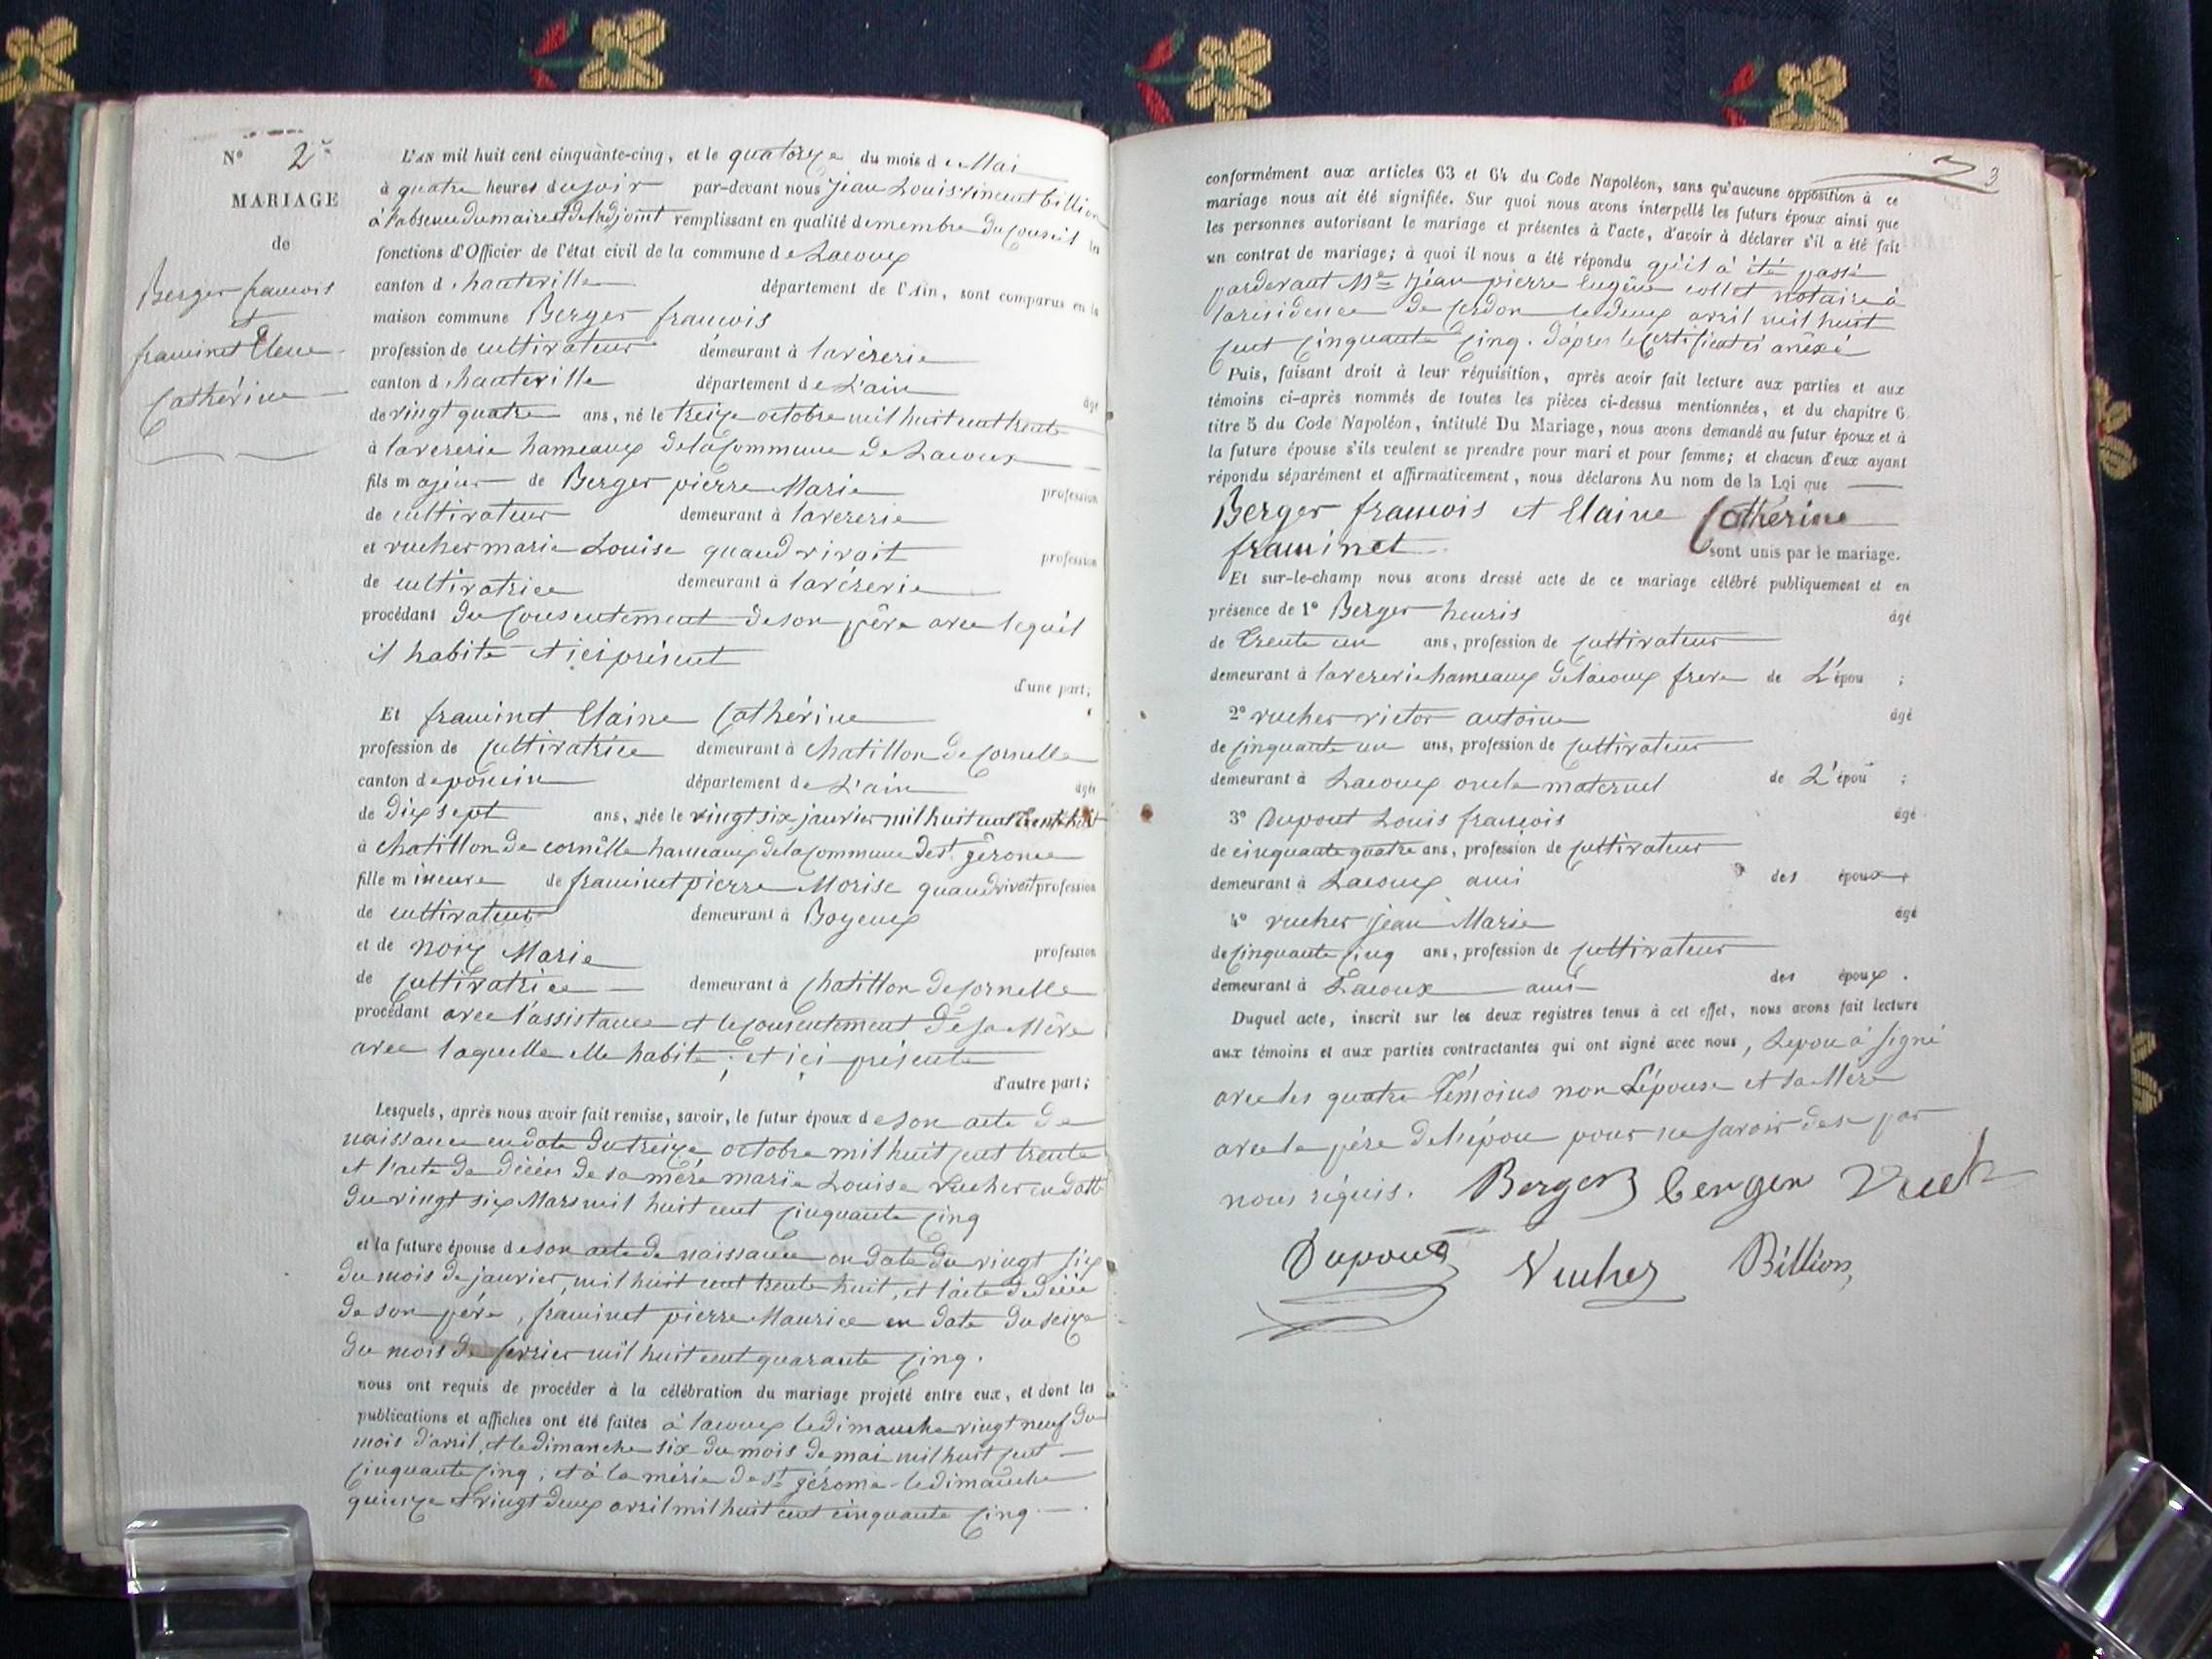 N° 2
MARIAGE
de
Berger francois
et
framinet Elene
Cathérine
L'AN mil huit cent cinquante-cinq, et le quatorze du mois de Mai
à quatre heures du soir par-devant nous jean Louis vincent billion
à l'absence du maire et de l'adjoint remplissant en qualité de membre du conseil les
fonctions d'Officier de l'état civil de la commune de Lacoux
canton d'hauteville département de l'Ain, sont comparus en la
maison commune Berger francois
profession de cultivateur demeurant à lavérerie
canton d'hauteville département de L'ain âgé
de vingt quatre ans, né le treize octobre mil huit cent trente
à lavererie hameaux de la commune de Lacoux
fils majeur de Berger pierre Marie profession
de cultivateur demeurant à lavererie
et vucher marie Louise quand vivait profession
de cultivatrice demeurant à lavérerie
procédant du consentement de son père avec lequel
il habite et ici présent
d'une part;
Et framinet Claine Cathérine
profession de cultivatrice demeurant à chatillon de cornelle
canton de poncin département de L'ain âgée
de dix sept ans, née le vingt six janvier mil huit cent trente huit
à chatillon de cornelle hameaux de la commune de st. gérome
fille mineure de framinet pierre Morise quand vivait profession
de cultivateur demeurant à Boyeux
et de noiz Marie profession
de cultivatrice demeurant à chatillon de cornelle
procédant avec l'assistance et le consentement de sa Mère
avec laquelle elle habite; et ici présente
d'autre part;
Lesquels, après nous avoir fait remise, savoir, le futur époux de son acte de
naissance en date du treize octobre mil huit cent trente
et l'acte de décés de sa mére marie Louise vucher en date
du vingt six Mars mil huit cent cinquante cinq
et la future épouse de son acte de naissance en date du vingt six
du mois de janvier, mil huit cent trente huit, et l'acte de décé
de son pére, framinet pierre Maurice en date du seize
du mois de fevrier mil huit cent quarante cinq.
nous ont requis de procéder à la célébration du mariage projeté entre eux, et dont les
publications et affiches ont été faites à lacoux le dimanche vingt neuf du
mois d'avril, et le dimanche six du mois de mai mil huit cent
cinquante cinq; et à la mérie de st gérome le dimanche
quinze et vingt deux avril mil huit cent cinquante cinq.
3
conformément aux articles 63 et 64 du Code Napoléon, sans qu'aucune opposition à ce
mariage nous ait été signifiée. Sur quoi nous avons interpellé les futurs époux ainsi que
les personnes autorisant le mariage et présentes à l'acte, d'avoir à déclarer s'il a été fait
un contrat de mariage; à quoi il nous a été répondu qu'il à été passé
pardevant Me jéan pierre Eugêne collet notaire à
la residence de cerdon le deux avril mil huit
cent cinquante cinq. d'après le certificat ci anéxé
Puis, faisant droit à leur réquisition, après avoir fait lecture aux parties et aux
témoins ci-après nommés de toutes les pièces ci-dessus mentionnées, et du chapitre 6
titre 5 du Code Napoléon, intitulé Du Mariage, nous avons demandé au futur époux et à
la future épouse s'ils veulent se prendre pour mari et pour femme; et chacun d'eux ayant
répondu séparément et affirmativement, nous déclarons Au nom de la Loi que
Berger francois et Claine Cathérine
framinet sont unis par le mariage.
Et sur-le-champ nous avons dressé acte de ce mariage célébré publiquement et en
présence de 1° Berger henris âgé
de trente un ans, profession de cultivateur
demeurant à lavererie hameaux de lacoux frere de L'épou ;
2° vucher victor antoine âgé
de cinquante un ans, profession de cultivateur
demeurant à Lacoux oncle maternel de L'épou ;
3° Dupont Louis francois âgé
de cinquante quatre ans, profession de cultivateur
demeurant à Lacoux ami des époux
4° vucher jean Marie âgé
de cinquante cinq ans, profession de cultivateur
demeurant à Lacoux ami des époux.
Duquel acte, inscrit sur les deux registres tenus à cet effet, nous avons fait lecture
aux témoins et aux parties contractantes qui ont signé avec nous, Lepou à signé
avec les quatre témoins non L'épouse et sa Mère
avec le pére de l'épou pour ne savoir de ce par
nous réquis. Berger berger Vuch
Dupont Vucher Billion